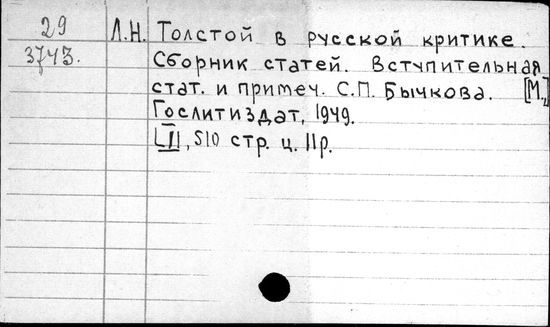 29 Л.Н. Толстой в русской критике.
3743. Сборник статей. Вступительная
стат. и примеч. С.П. Бычкова. [М.,]
Гослитиздат, 1949.
LII, 510 стр. ц. 11р.